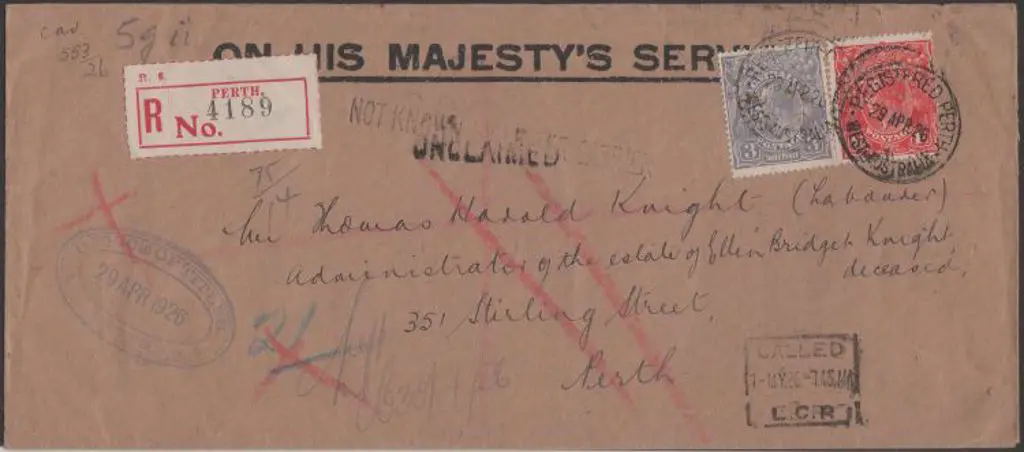 553
26
ON HIS MAJESTY'S SERV
R. 6.
PERTH.
R No. 4189
NOT KNOWN
UNCLAIMED
3
REGISTERED PERTH
29 APR 26
WEST AUSTRALIA
75
14
Mr Thomas Harold Knight (Labourer)
Administrator of the estate of Ellen Bridget Knight,
deceased,
351 Stirling Street,
Perth
29 APR 1926
CALLED
1-MY.26-7.45.AM
L.C.R